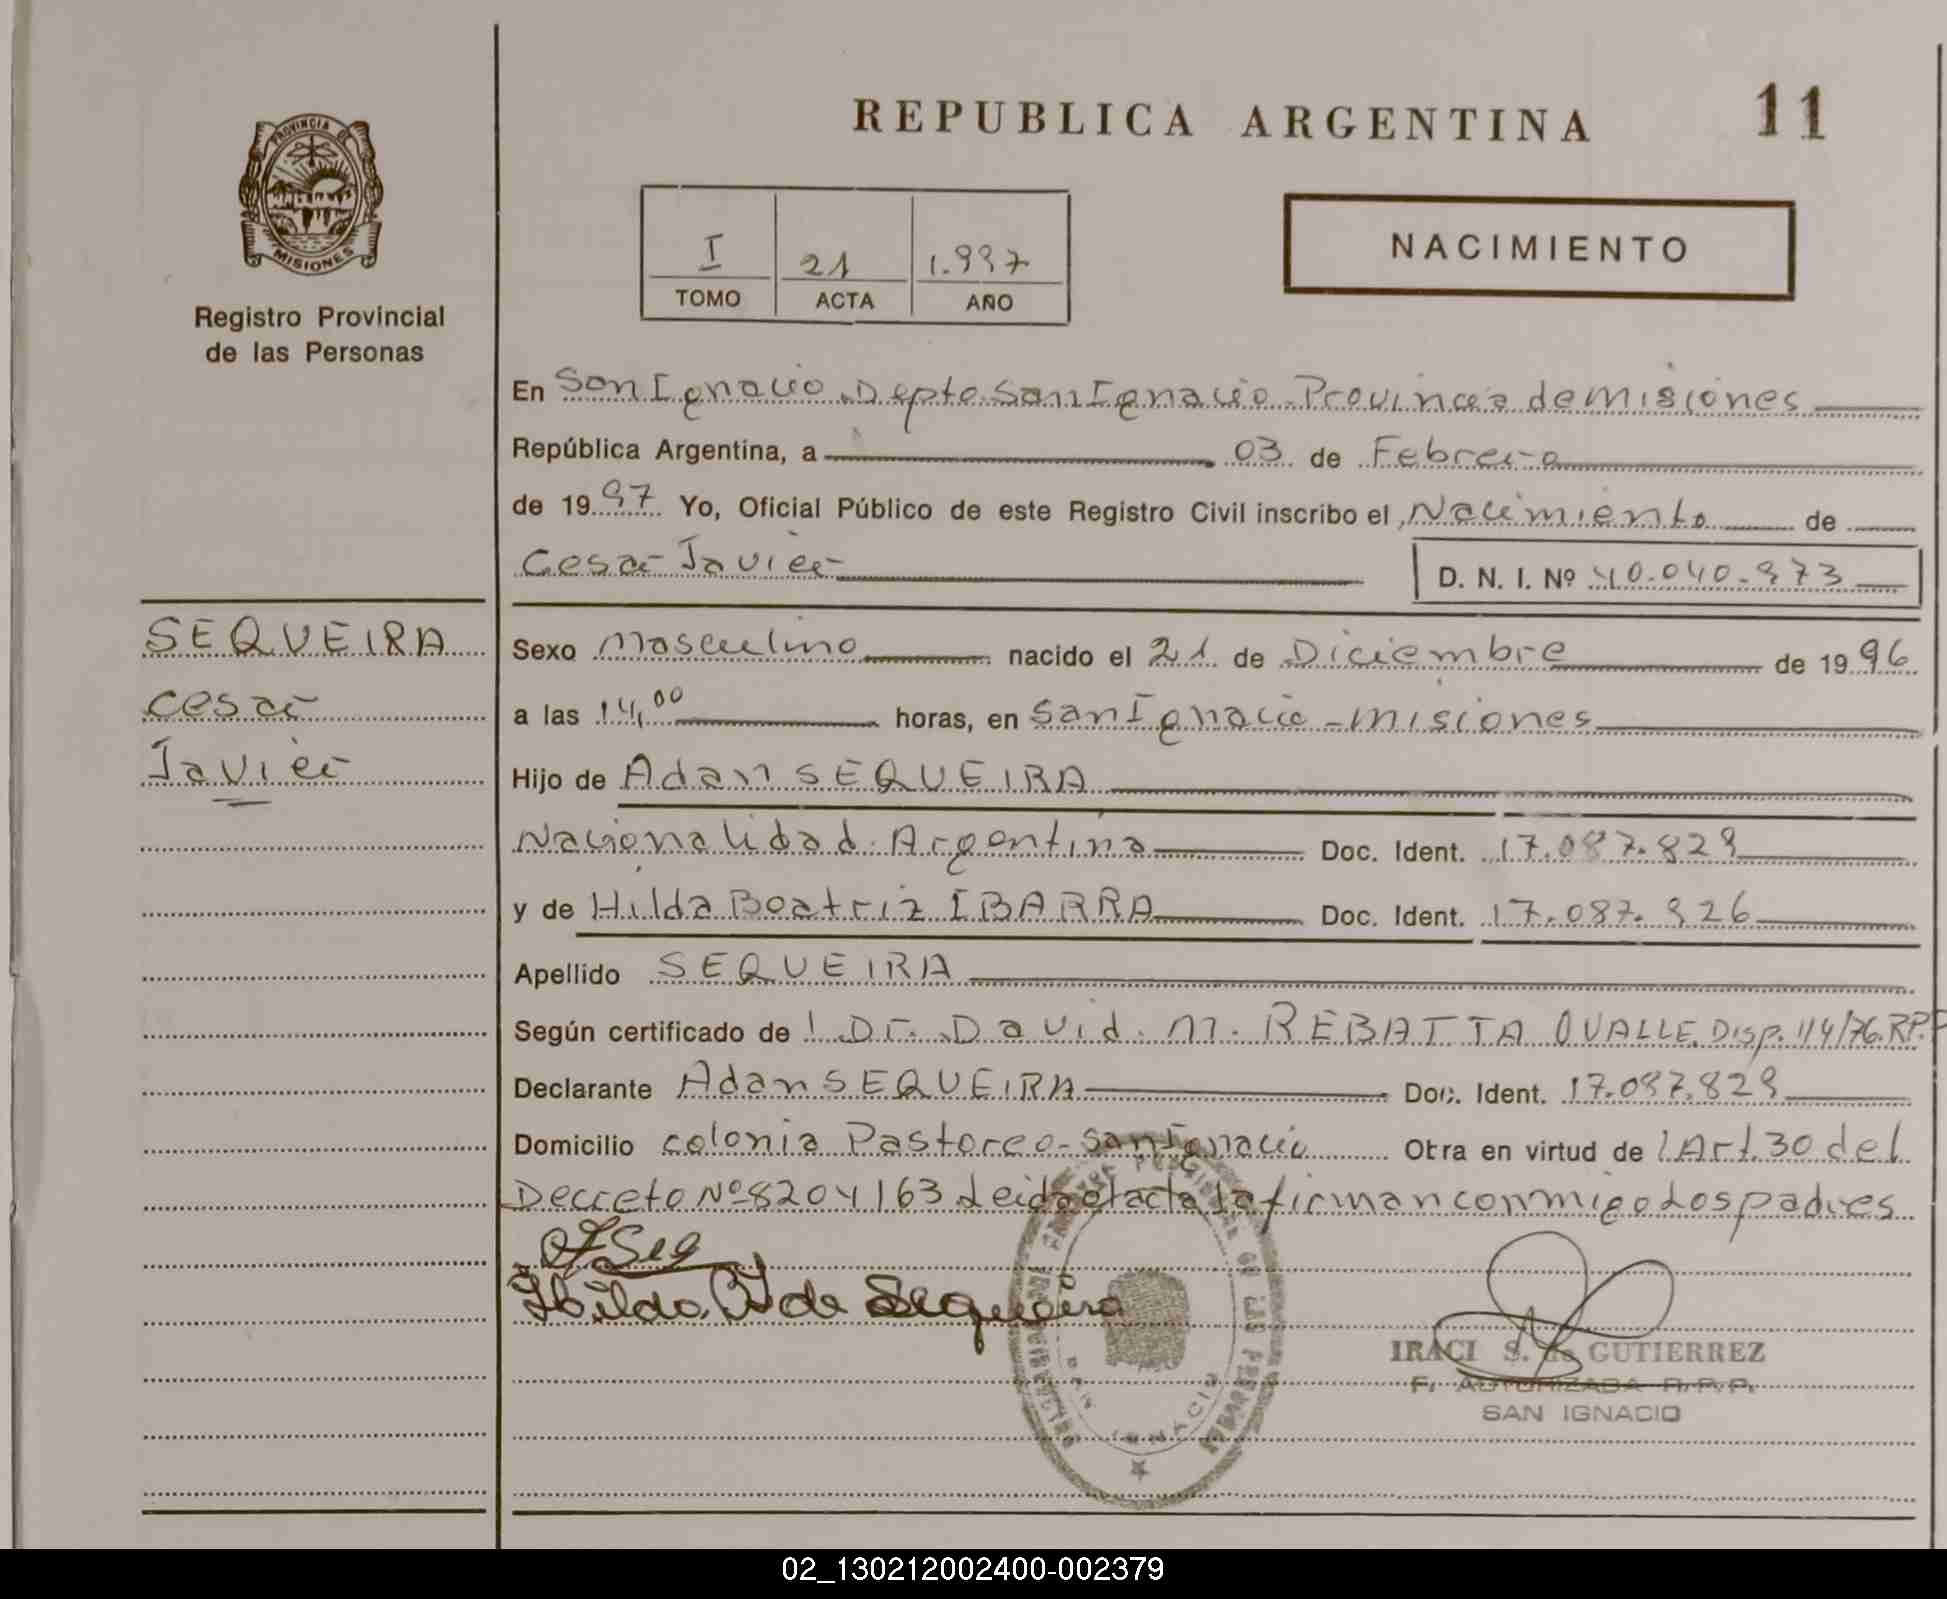 REPUBLICA ARGENTINA 11
PROVINCIA DE
MISIONES
Registro Provincial
de las Personas
I 21 1.997
TOMO ACTA AÑO
NACIMIENTO
En San Ignacio Depto San Ignacio - Provincia de Misiones
República Argentina, a 03 de Febrero
de 1997 Yo, Oficial Público de este Registro Civil inscribo el Nacimiento de
Cesar Javier D. N. I. Nº 40.040.973
SEQUEIRA
Cesar
Javier
Sexo Masculino nacido el 21 de Diciembre de 1996
a las 14,00 horas, en San Ignacio - Misiones
Hijo de Adan SEQUEIRA
Nacionalidad Argentina Doc. Ident. 17.087.829
y de Hilda Beatriz IBARRA Doc. Ident. 17.087.926
Apellido SEQUEIRA
Según certificado de l Dr. David. M. REBATTA OVALLE. Disp. 114/76. R.P.P
Declarante Adan SEQUEIRA Doc. Ident. 17.087.829
Domicilio Colonia Pastoreo - San Ignacio Otra en virtud de l Art. 30 del
Decreto Nº 8204/63 Leida el acta la firman conmigo Los padres
Hilda I de Sequeira
IRACI S. de GUTIERREZ
F. AUTORIZADA R.P.P.
SAN IGNACIO
IGNACIO
02_130212002400-002379